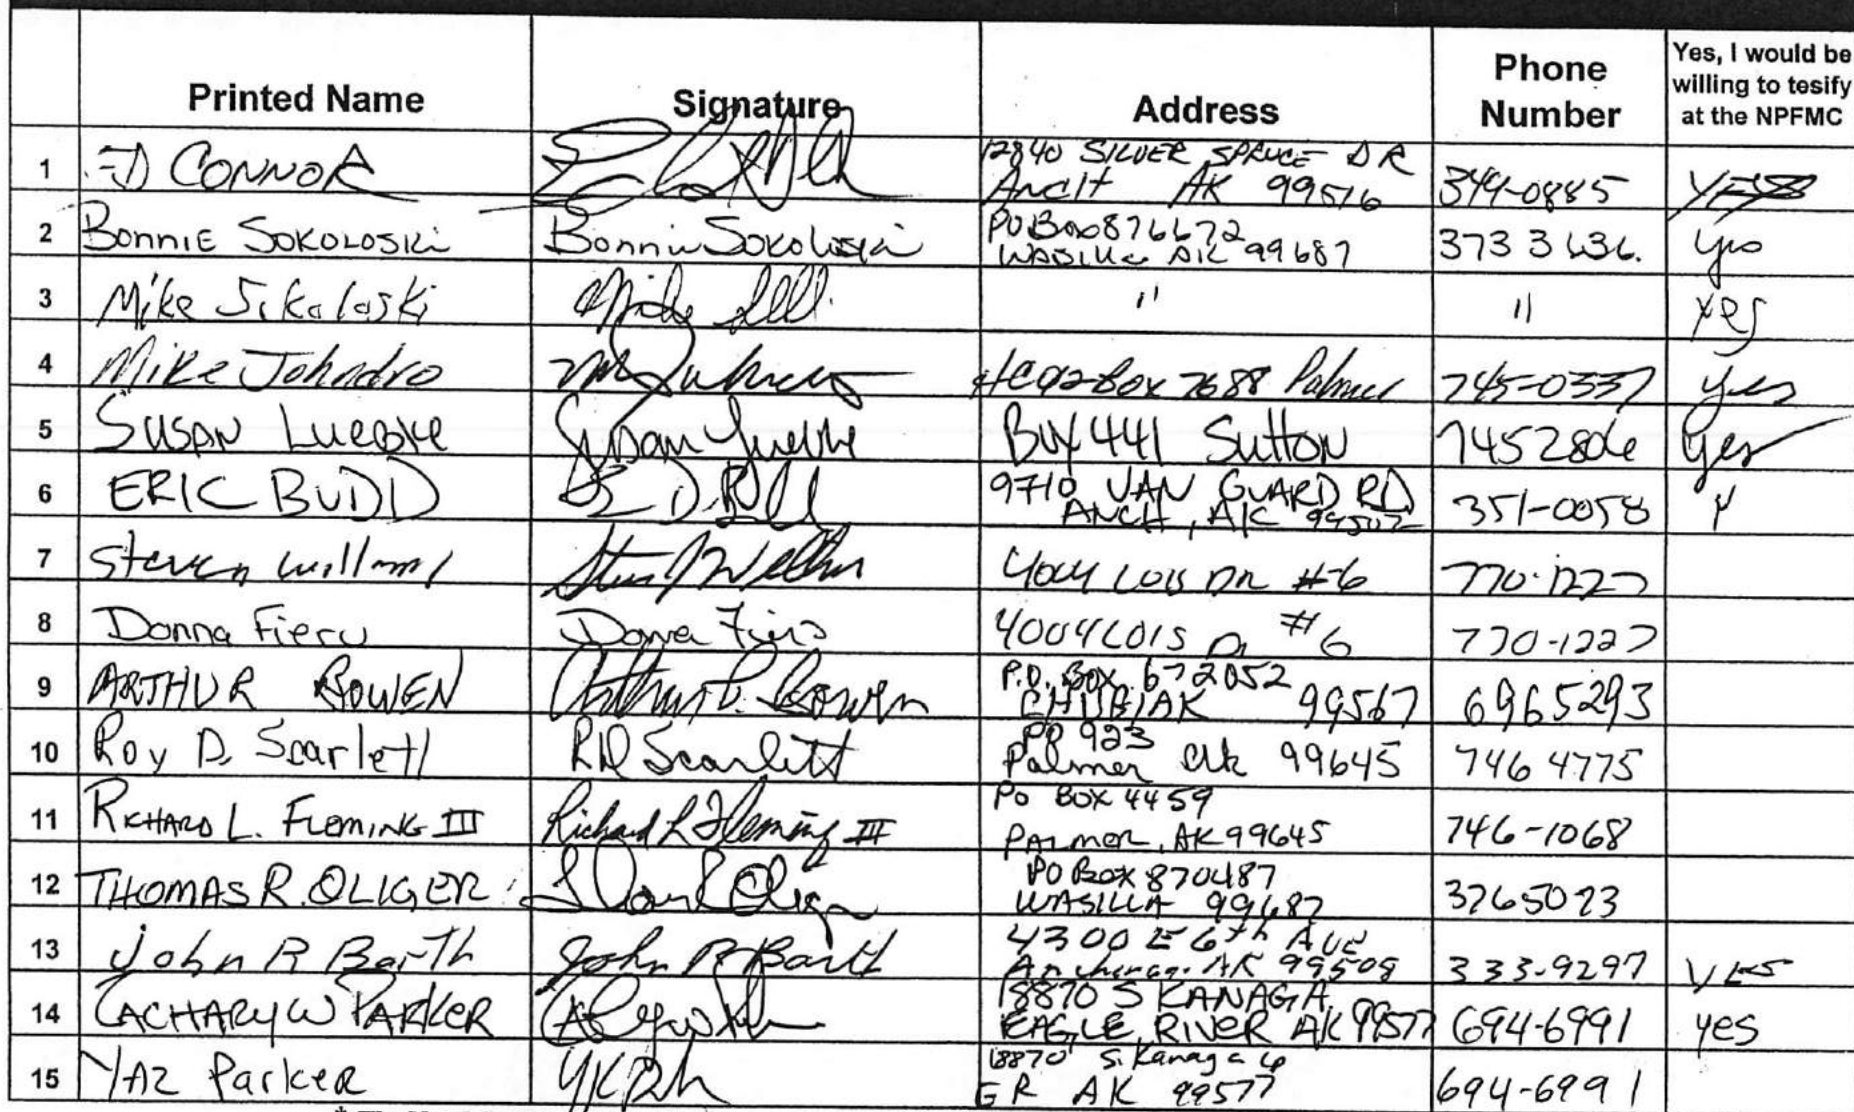 Printed Name Signature Address Phone Number Yes, I would be willing to tesify at the NPFMC
1 ED CONNOR 12840 SILVER SPRUCE DR
Anch AK 99516 349-0885 YES
2 BONNIE SOKOLOSKI Bonnie Sokoloski PO Box 876672
WASILLA AK 99687 373 3636. yes
3 Mike Sikolaski " " yes
4 Mike Johndro HC02 Box 7688 Palmer 745-0337 yes
5 SUSAN LUEBKE Susan Luebke BOX 441 Sutton 745 2806 yes
6 ERIC BUDD 9710 VAN GUARD RD
ANCH, AK 99507 351-0058 Y
7 Steven 4004 LOIS DR #6 770-1227
8 Donna 4004 LOIS Dr #6 770-1227
9 ARTHUR BOWEN Arthur Bowen P.O. BOX 672052
CHUGIAK 99567 696 5293
10 Roy D. Scarlett RD Scarlett PO 923
Palmer ak 99645 746 4775
11 RICHARD L. FLEMING III Richard L Fleming III PO BOX 4459
PALMER, AK 99645 746-1068
12 THOMAS R. OLIGER PO BOX 870487
WASILLA 99687 376 5023
13 John R Barth John R Barth 4300 E 6th AVE
Anchorage AK 99508 333-9297 YES
14 ZACHARY W PARKER 18870 S KANAGA
EAGLE RIVER AK 99577 694-6991 yes
15 YAZ Parker 18870 S. Kanaga
ER AK 99577 694-6991